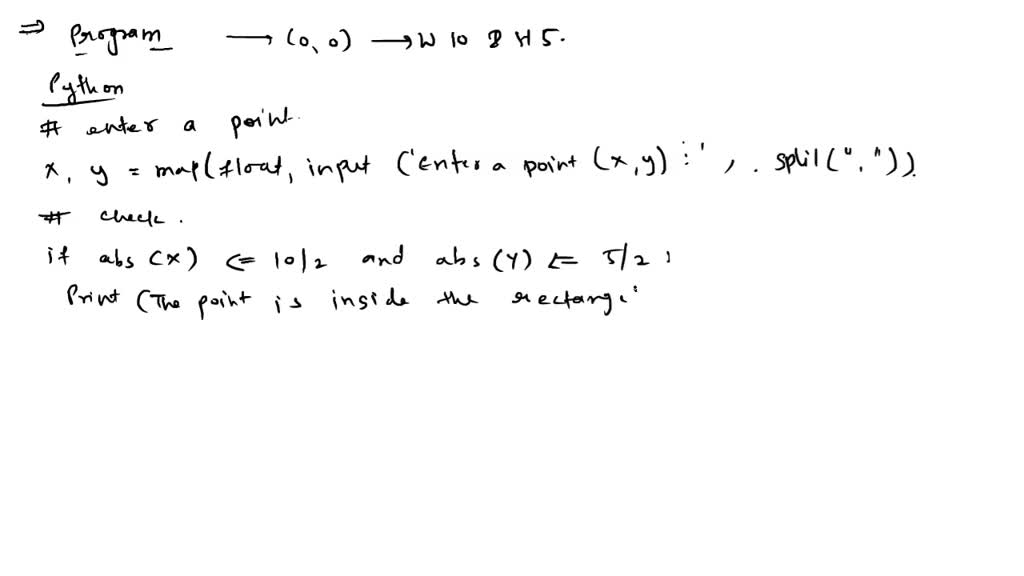 ⇒ Program → (0, 0) → W 10 & H 5.
Python
# enter a point.
x, y = map(float, input ('Enter a point (x,y) :', . split(",")).
# check.
if abs (x) <= 10/2 and abs (Y) <= 5/2 :
Print (The point is inside the rectang